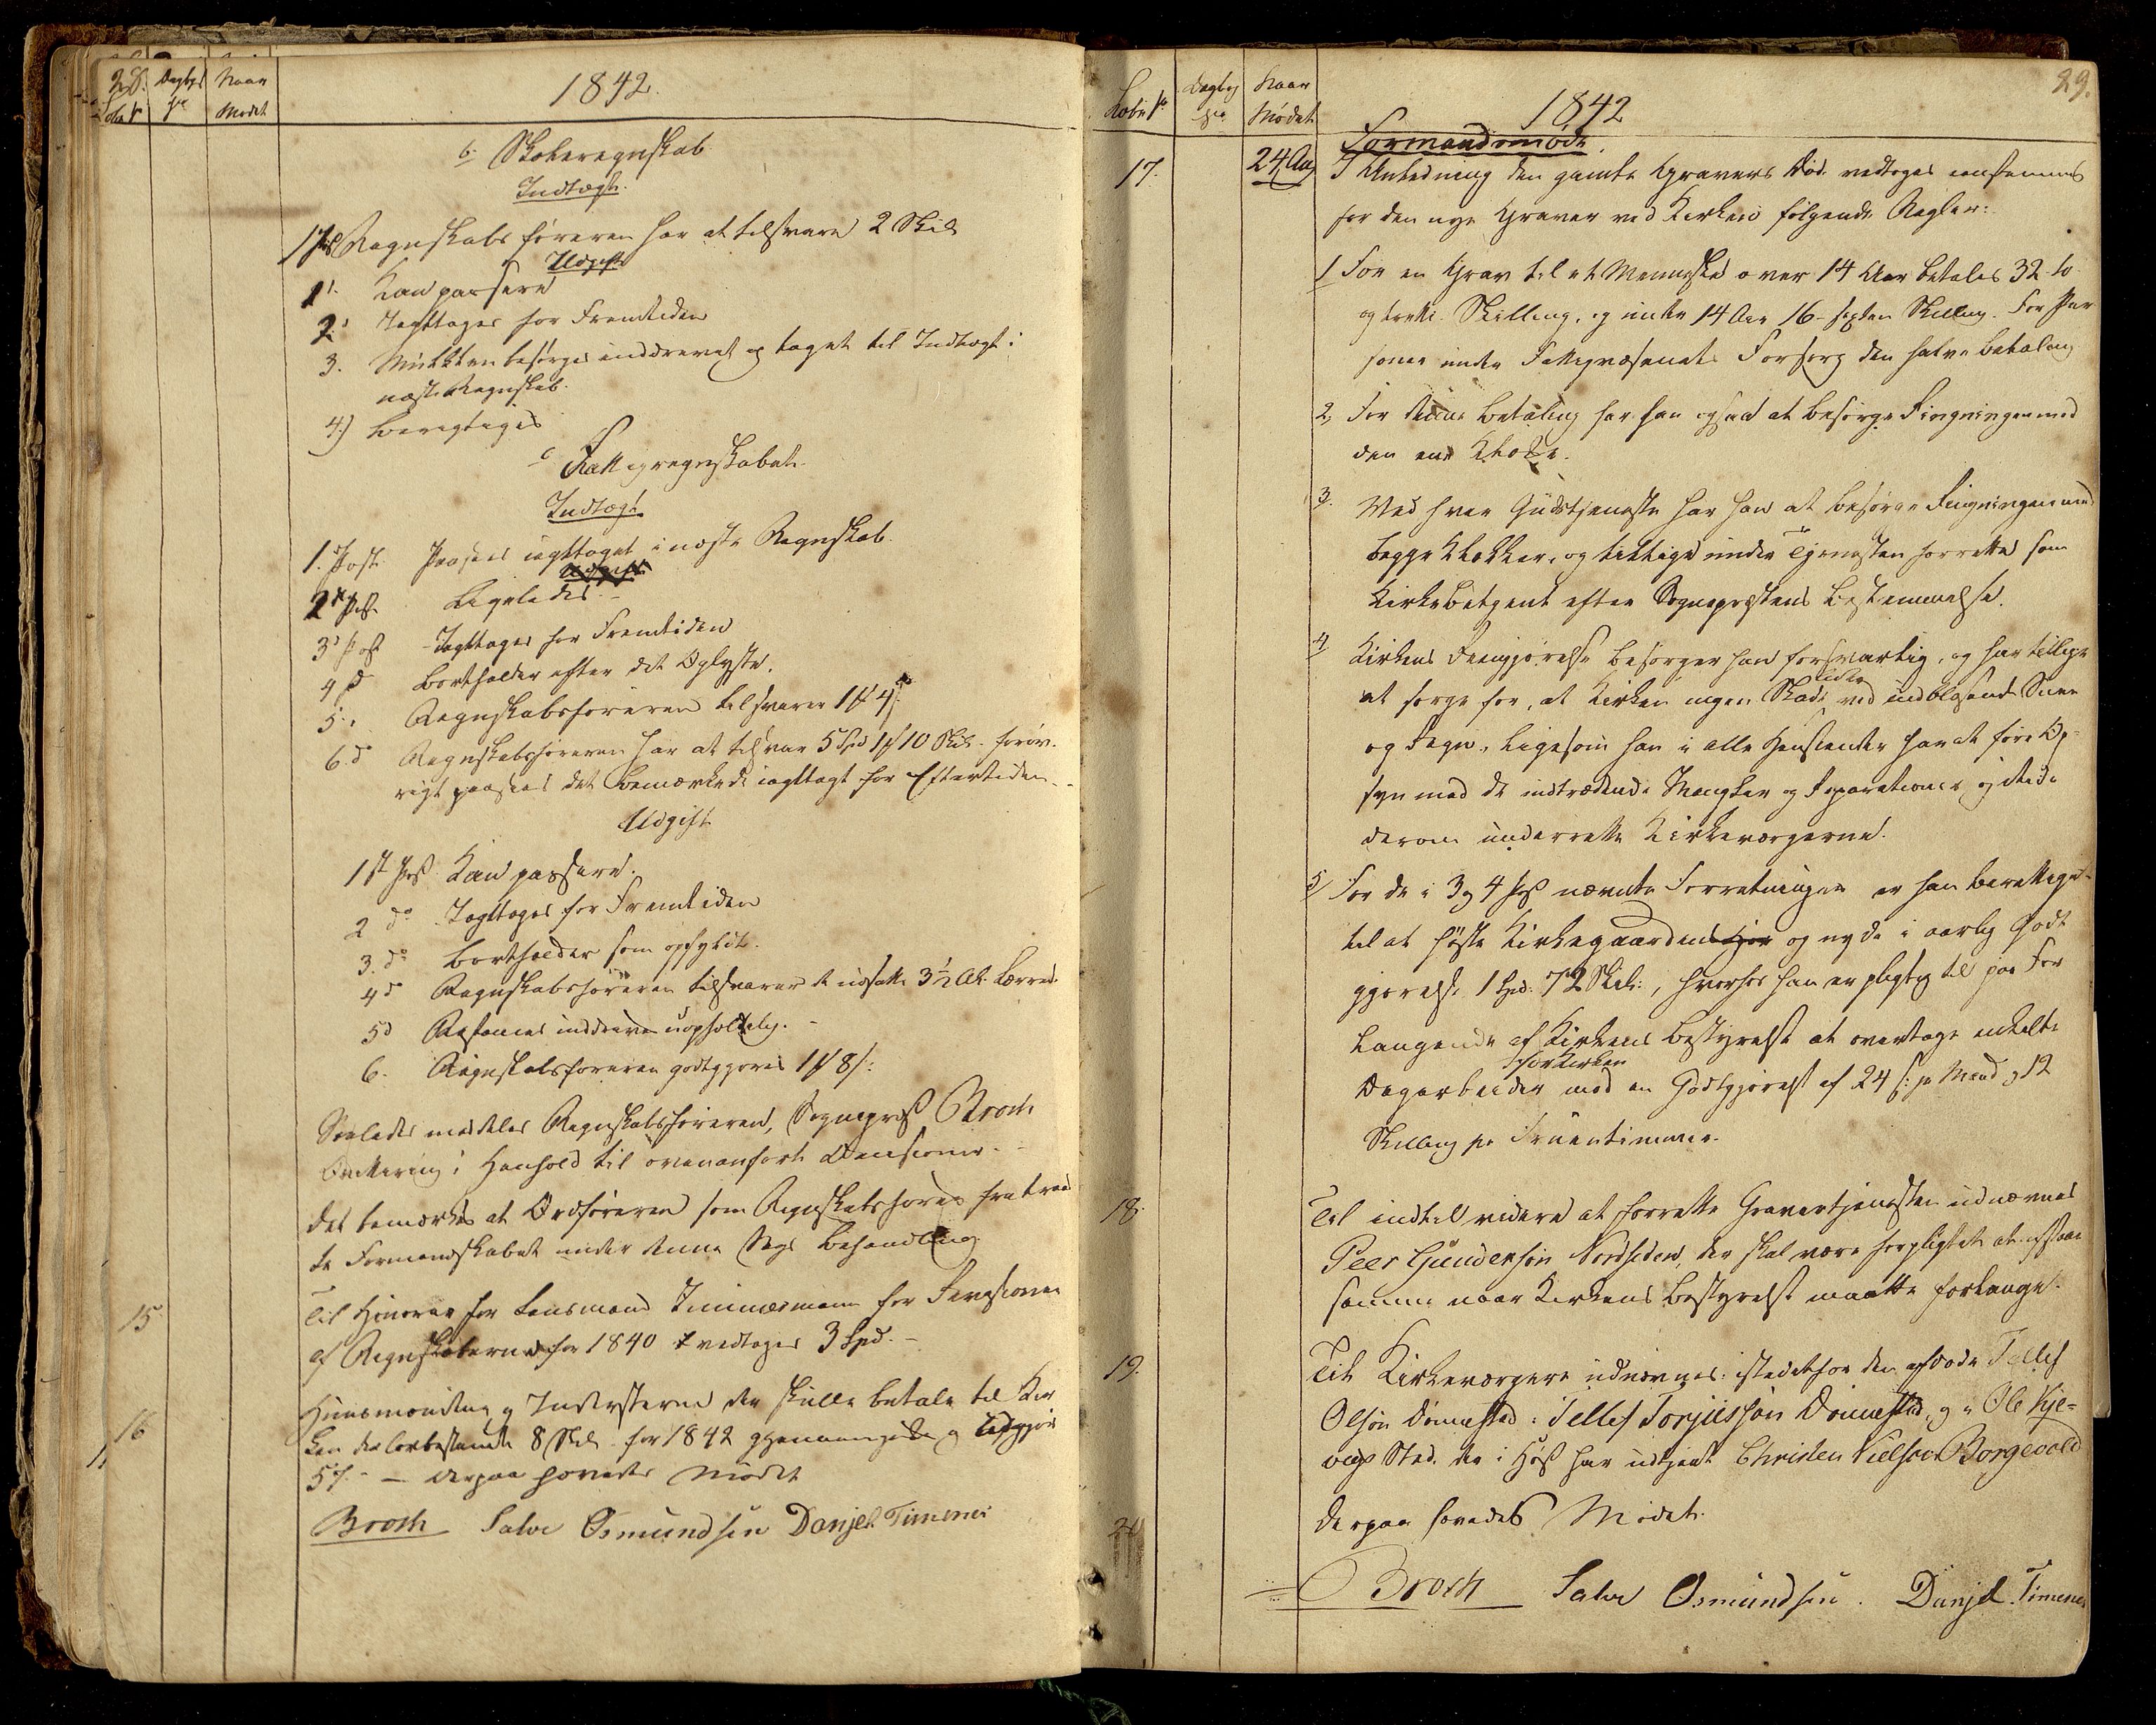 28.
Dagbgs
Naar
Løbe N
No
Mødet
1842.
b. Skoleregnskab
Indtægt.
1 Post Regnskabsføreren har at tilsvare 2 Skil
Udgift
1. Kan passere
2. Iagttages for Fremtiden
3. Mulkten besørges inddrevet og taget til Indtægt i
næste Regnskab.
4.) Berigtiges
c Fattigregnskabet.
Indtægt
1. Post Paasees iagttaget i næste Regnskab.
Udgift
2d Post Ligeledes. –
3d Post Iagttages for Fremtiden
4 d Bortfalder efter det Oplyste.
5. Regnskabsføreren tilsvarer 1 # 4 s
6. d Regnskabsføreren har at tilsvare 5 Spd 1 # 10 Skil. forøv-
rigt paasees det bemærkede iagttagt for Eftertiden –
Udgift
1st Post Kan passere.
2 do Iagttages for Fremtiden
3. do Bortfalder som opfyldt.
4 d Regnskabsføreren tilsvarer de udsatte 3½ Al. Lærred.
5 d Restancen inddrives uopholdelig. –
6. Regnskabsføreren godtgjøres 1 # 8 s:
Saaledes meddeles Regnskabsføreren, Sognepræst Broch
Qvittering i Henhold til ovenanførte Decisioner. –
Det bemærkes at Ordføreren som Regnskabsfører fratraad
te Formandskabet under denne Sags Behandling
15.
Til Honorar for Lensmand Timmermann for Revisionen
af Regnskaberne for 1840 vedtoges 3 Spd. –
16
Huusmændene og Indersterne der skulle betale til Kir
ken den lovbestemte 8 Skil. for 1842 gjennemgikes og udgjør
57. – – Derpaa hævedes Mødet
Broch Salve Osmundsen Danjel Timenes
29.
Løbe No
Dagbg
No
Naar
Mødet
1842
Formandsmøde.
17.
24 Aug
I Anledning den gamle Gravers Død vedtoges eenstemmig
for den nye Graver ved Kirken følgende Regler:
1 For en Grav til et Menneske over 14 Aar betales 32 to
og tredive Skilling, og under 14 Aar 16 – sexten Skilling. For Per
soner under Fattigvæsenets Forsorg den halve Betaling
2, For denne Betaling har han ogsaa at besørge Ringningen med
den ene Klokke.
3. Ved hver Gudstjeneste har han at besørge Ringningen med
begge Klokker, og tillige under Tjenesten forrette som
Kirkebetjent efter Sognepræstens Bestemmelse.
4) Kirkens Reengjørelse besørger han forsvarlig, og har tillige
lider
at sørge for, at Kirken ingen Skade ved indblæsende Snee
og Regn, ligesom han i alle Henseender har at føre Op-
syn med de indtrædende Mangler og Reparationer og strax
derom underrette Kirkeværgerne.
5) For de i 3 og 4 Post nævnte Forretninger er han berettiget
til at høste Kirkegaarden og nyde i aarlig Godt
gjørelse 1 Spd. 72 Skil:, hvorhos han er pligtig til paa For
langende af Kirkens Bestyrelse at overtage enkelte
for Kirken
Dagarbeider mod en Godtgjørelse af 24 s: pr Mand og 12
Skilling pr Fruentimmer.
18.
Til indtil videre at forrette Gravertjenesten udnævnes
Peer Gundersøn Nordseden, der skal være forpligtet at afstaae
samme naar Kirkens Bestyrelse maatte forlange.
19.
Til Kirkeværgere udnævnes: istedetfor den afdøde Tellef
Olsøn Dønnestad: Tellef Torjussøn Dønnestad, og i Ole Kje-
vigs Sted, der i Høst har udtjent Christen Nielsen Borgevold
Derpaa hævedes Mødet.
Broch Salve Osmundsen. Danjel Timenes